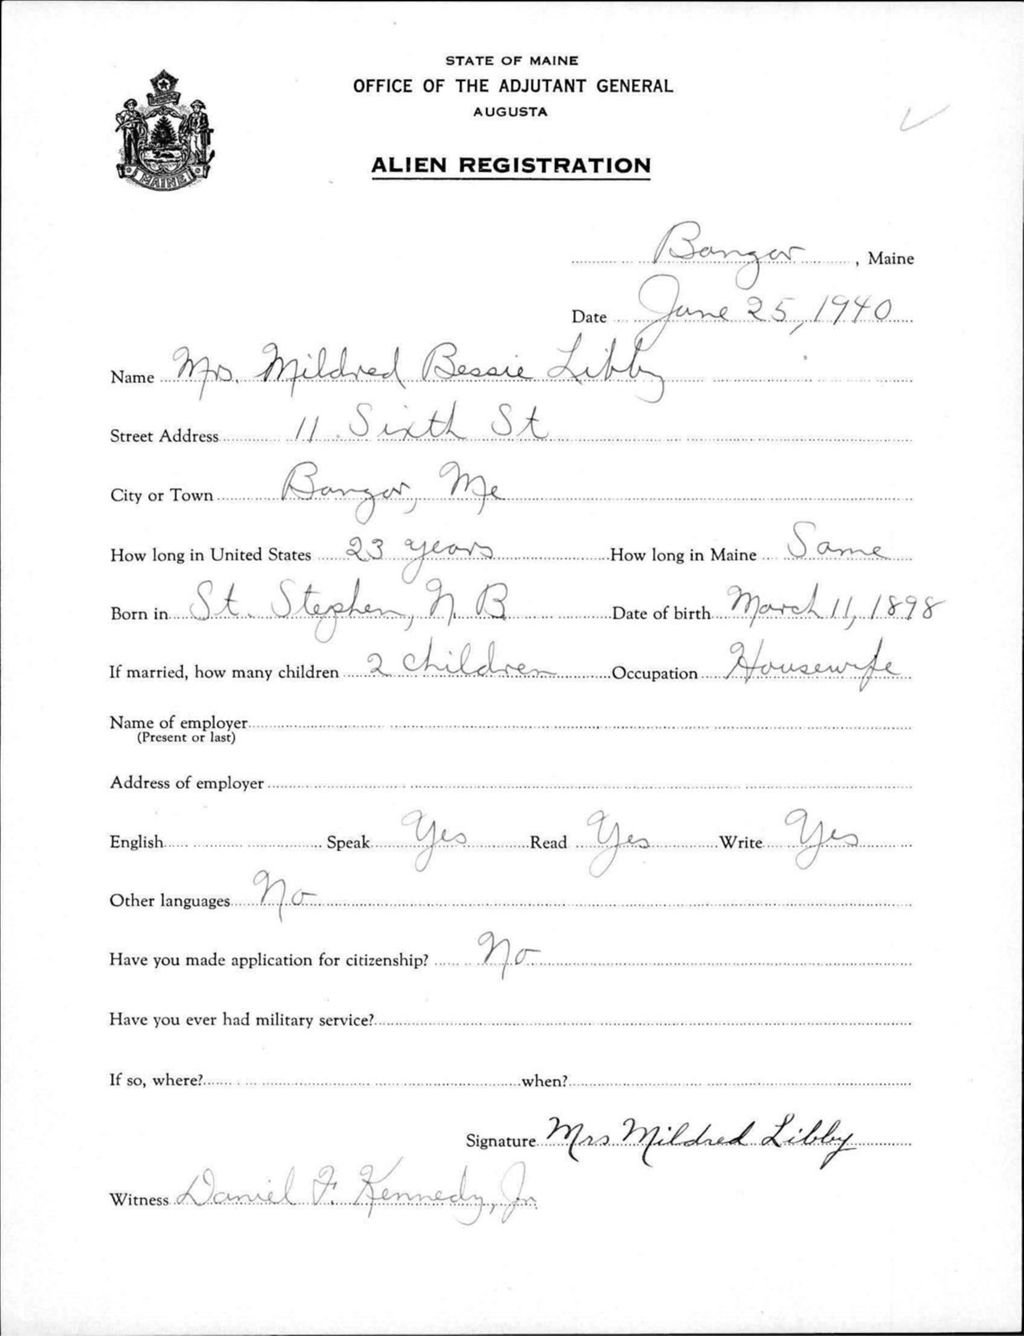 STATE OF MAINE
OFFICE OF THE ADJUTANT GENERAL
AUGUSTA
ALIEN REGISTRATION
MAINE
Bangor, Maine
Date June 25, 1940
Name Mrs. Mildred Bessie Libby
Street Address 11 Sixth St
City or Town Bangor, Me
How long in United States 23 years How long in Maine Same
Born in St. Stephen, N.B Date of birth March 11, 1898
If married, how many children 2 children Occupation Housewife
Name of employer
(Present or last)
Address of employer
English Speak Yes Read Yes Write Yes
Other languages No
Have you made application for citizenship? No
Have you ever had military service?
If so, where? when?
Signature Mrs Mildred Libby
Witness Daniel F. Kennedy, Jr.